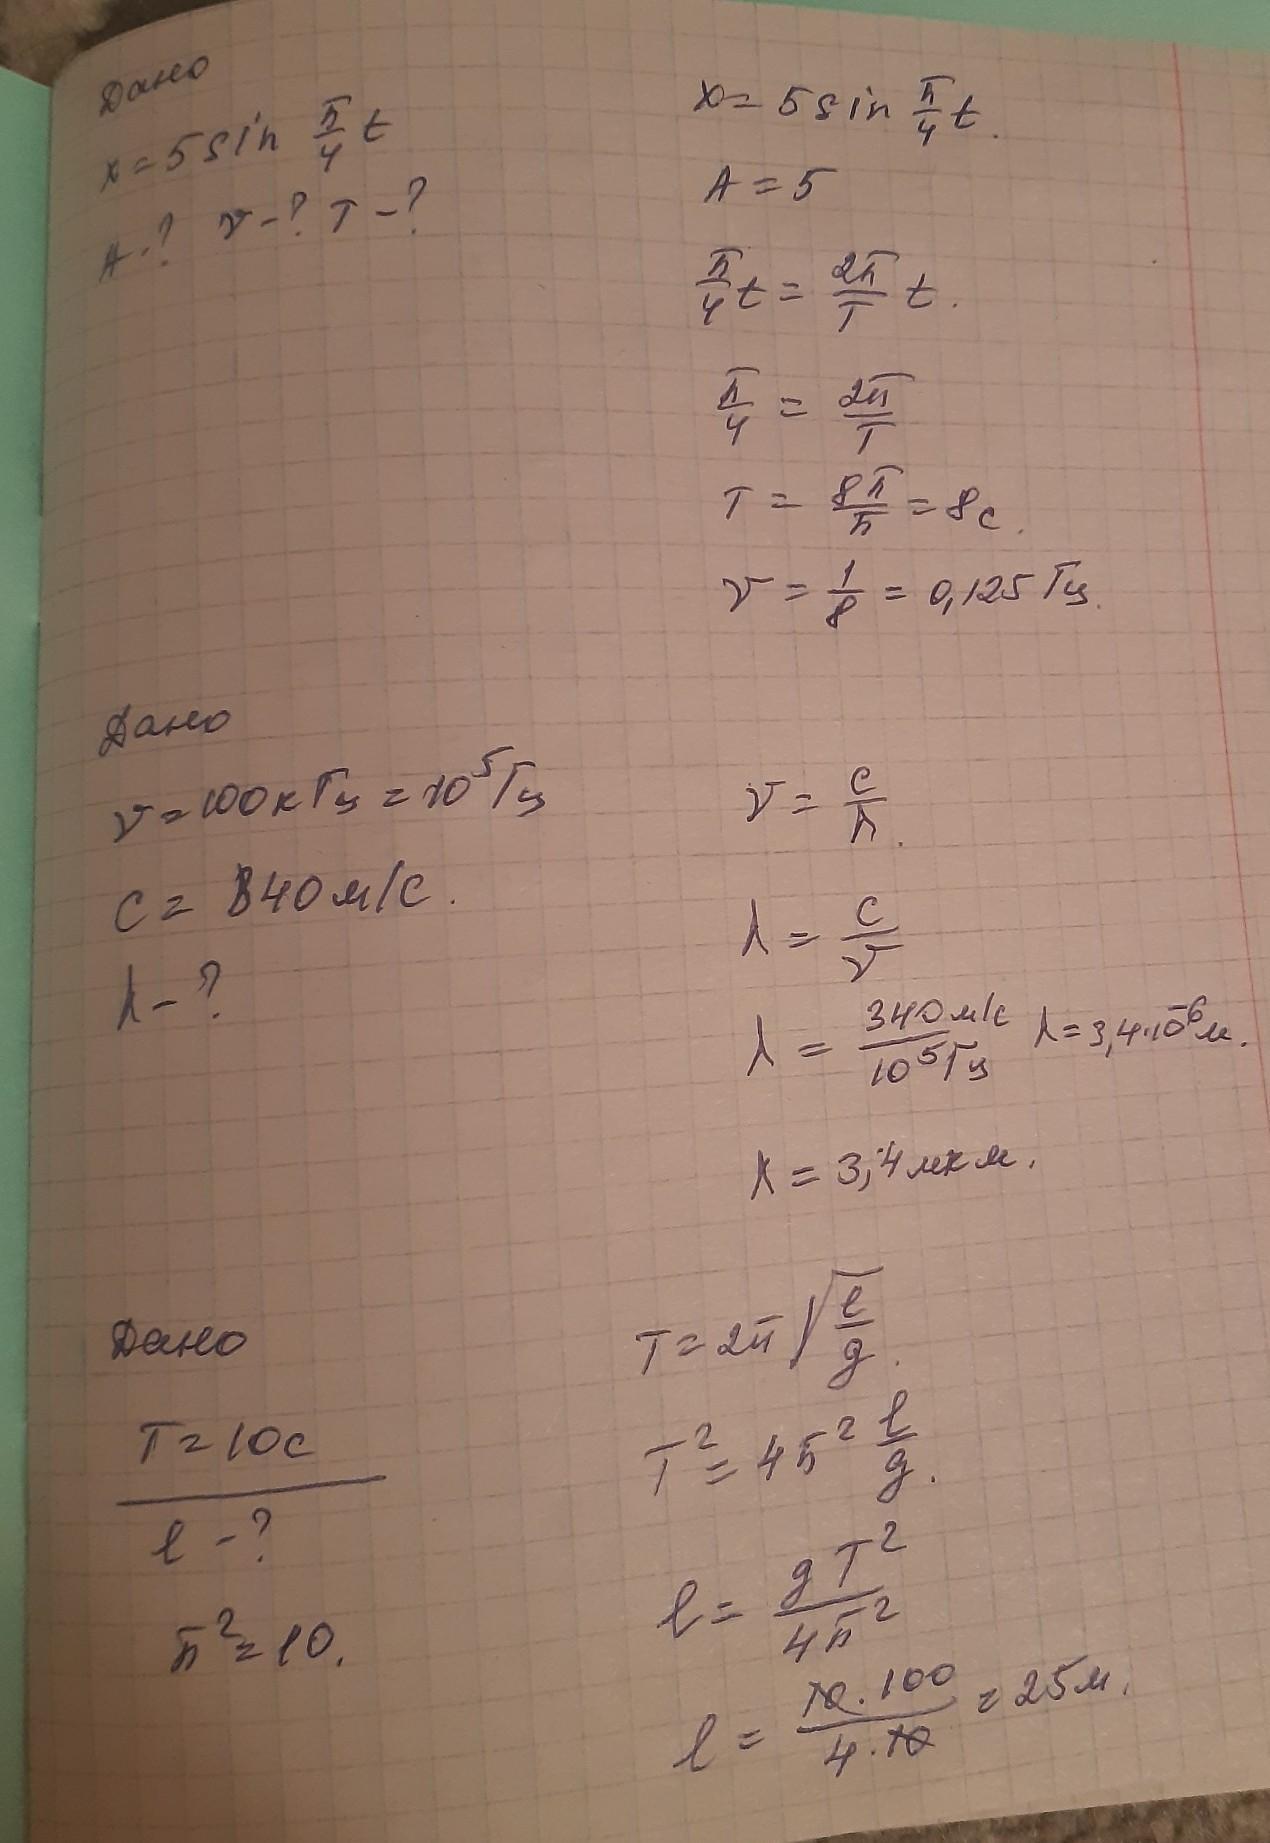 Дано
x = 5 sin π/4 t
A - ? ν - ? T - ?
x = 5 sin π/4 t.
A = 5
π/4 t = 2π/T t.
π/4 = 2π/T
T = 8π/π = 8с.
ν = 1/8 = 0,125 Гц.
Дано
ν = 100 кГц = 10⁵ Гц
c = 340 м/с.
λ - ?
ν = c/λ.
λ = c/ν
λ = 340 м/с / 10⁵ Гц λ = 3,4·10⁻⁶ м.
λ = 3,4 мкм.
Дано
T = 10с
l - ?
π² = 10.
T = 2π √(l/g).
T² = 4π² l/g.
l = gT²/4π²
l = 10·100/4·10 = 25м.